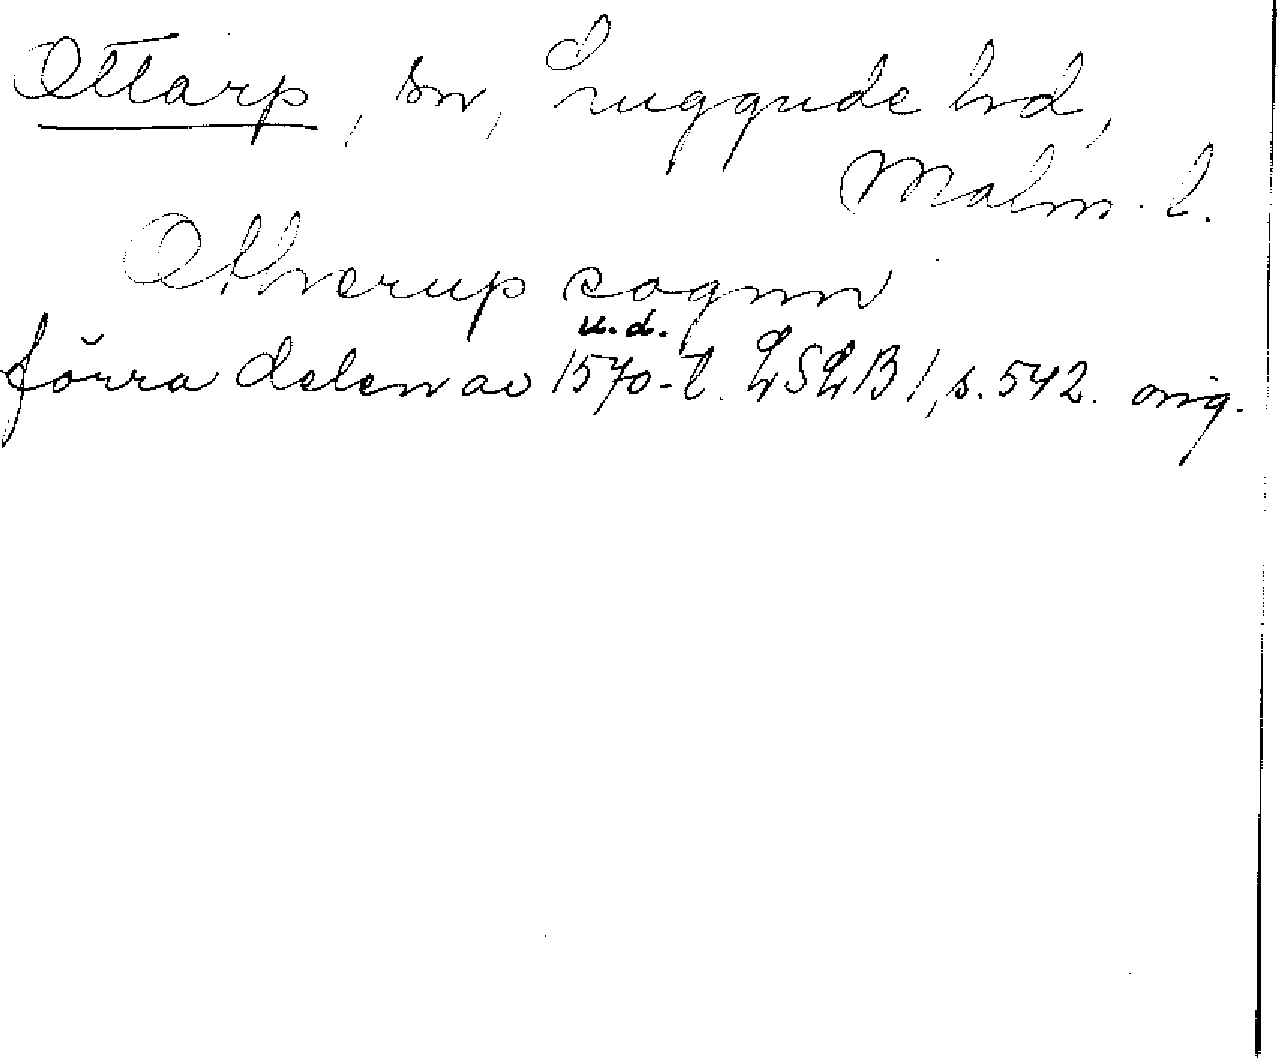 Ottarp, sn, Luggude hd,
Malm. l.
Otthrerup sognn
u.d.
förra delen av 1570-t. LSLB 1, s. 542. orig.